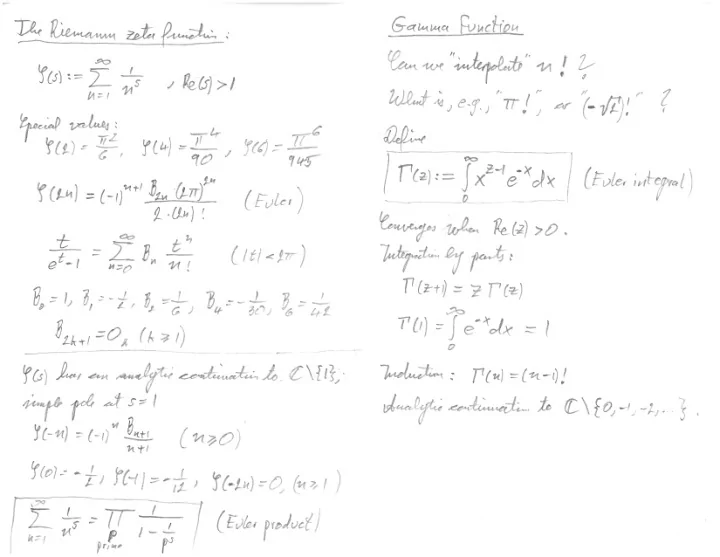 The Riemann zeta function:
ζ(s) := ∑_{n=1}^{∞} 1/n^s , Re(s) > 1
Special values:
ζ(2) = π^2/6, ζ(4) = π^4/90, ζ(6) = π^6/945
ζ(2n) = (-1)^{n+1} B_{2n} (2π)^{2n} / 2·(2n)! (Euler)
t/(e^t - 1) = ∑_{n=0}^{∞} B_n t^n/n! (|t| < 2π)
B_0 = 1, B_1 = -1/2, B_2 = 1/6, B_4 = -1/30, B_6 = 1/42
B_{2k+1} = 0, (k ≥ 1)
ζ(s) has an analytic continuation to ℂ\{1};
simple pole at s = 1
ζ(-n) = (-1)^n B_{n+1}/(n+1) (n ≥ 0)
ζ(0) = -1/2, ζ(-1) = -1/12, ζ(-2n) = 0, (n ≥ 1)
∑_{n=1}^{∞} 1/n^s = ∏_{p prime} 1/(1 - 1/p^s) (Euler product)
Gamma Function
Can we "interpolate" n! ?
What is, e.g., "π!", or "(-√2)!" ?
Define
Γ(z) := ∫_0^∞ x^{z-1} e^{-x} dx (Euler integral)
Converges when Re(z) > 0.
Integration by parts:
Γ(z+1) = z Γ(z)
Γ(1) = ∫_0^∞ e^{-x} dx = 1
Induction: Γ(n) = (n-1)!
Analytic continuation to ℂ\{0,-1,-2,...}.